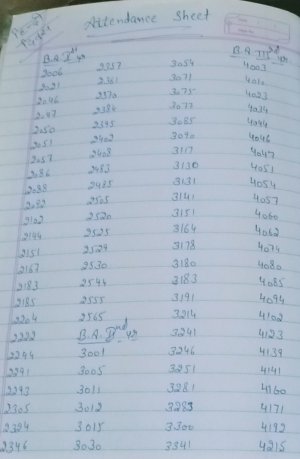 Attendance Sheet
B.A. Ist yr
2006
2021
2046
2047
2050
2051
2057
2086
2088
2092
2102
2144
2151
2167
2183
2185
2204
2222
2244
2291
2293
2305
2324
2346
2357
2361
2370
2384
2395
2402
2408
2483
2485
2505
2520
2525
2529
2530
2544
2555
2565
B.A. IInd yr
3001
3005
3011
3012
3015
3030
3054
3071
3075
3077
3085
3090
3117
3130
3131
3141
3151
3164
3178
3180
3183
3191
3214
3241
3246
3251
3281
3283
3300
3341
B.A. IIIrd yr
4003
4010
4023
4034
4044
4046
4047
4051
4054
4057
4060
4062
4074
4080
4085
4094
4102
4123
4139
4141
4160
4171
4192
4215